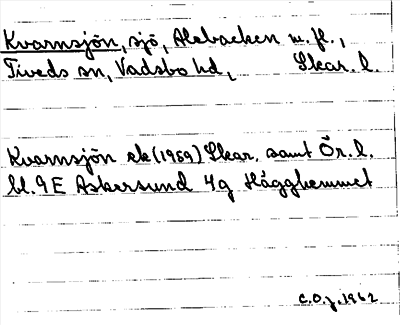 Kvarnsjön, sjö, Alebacken m. fl.,
Tiveds sn, Vadsbo hd, Skar. l.
Kvarnsjön ek (1969) Skar. samt Ör. l.
bl. 9E Askersund 4g Hägghemmet
C.O.J. 1962